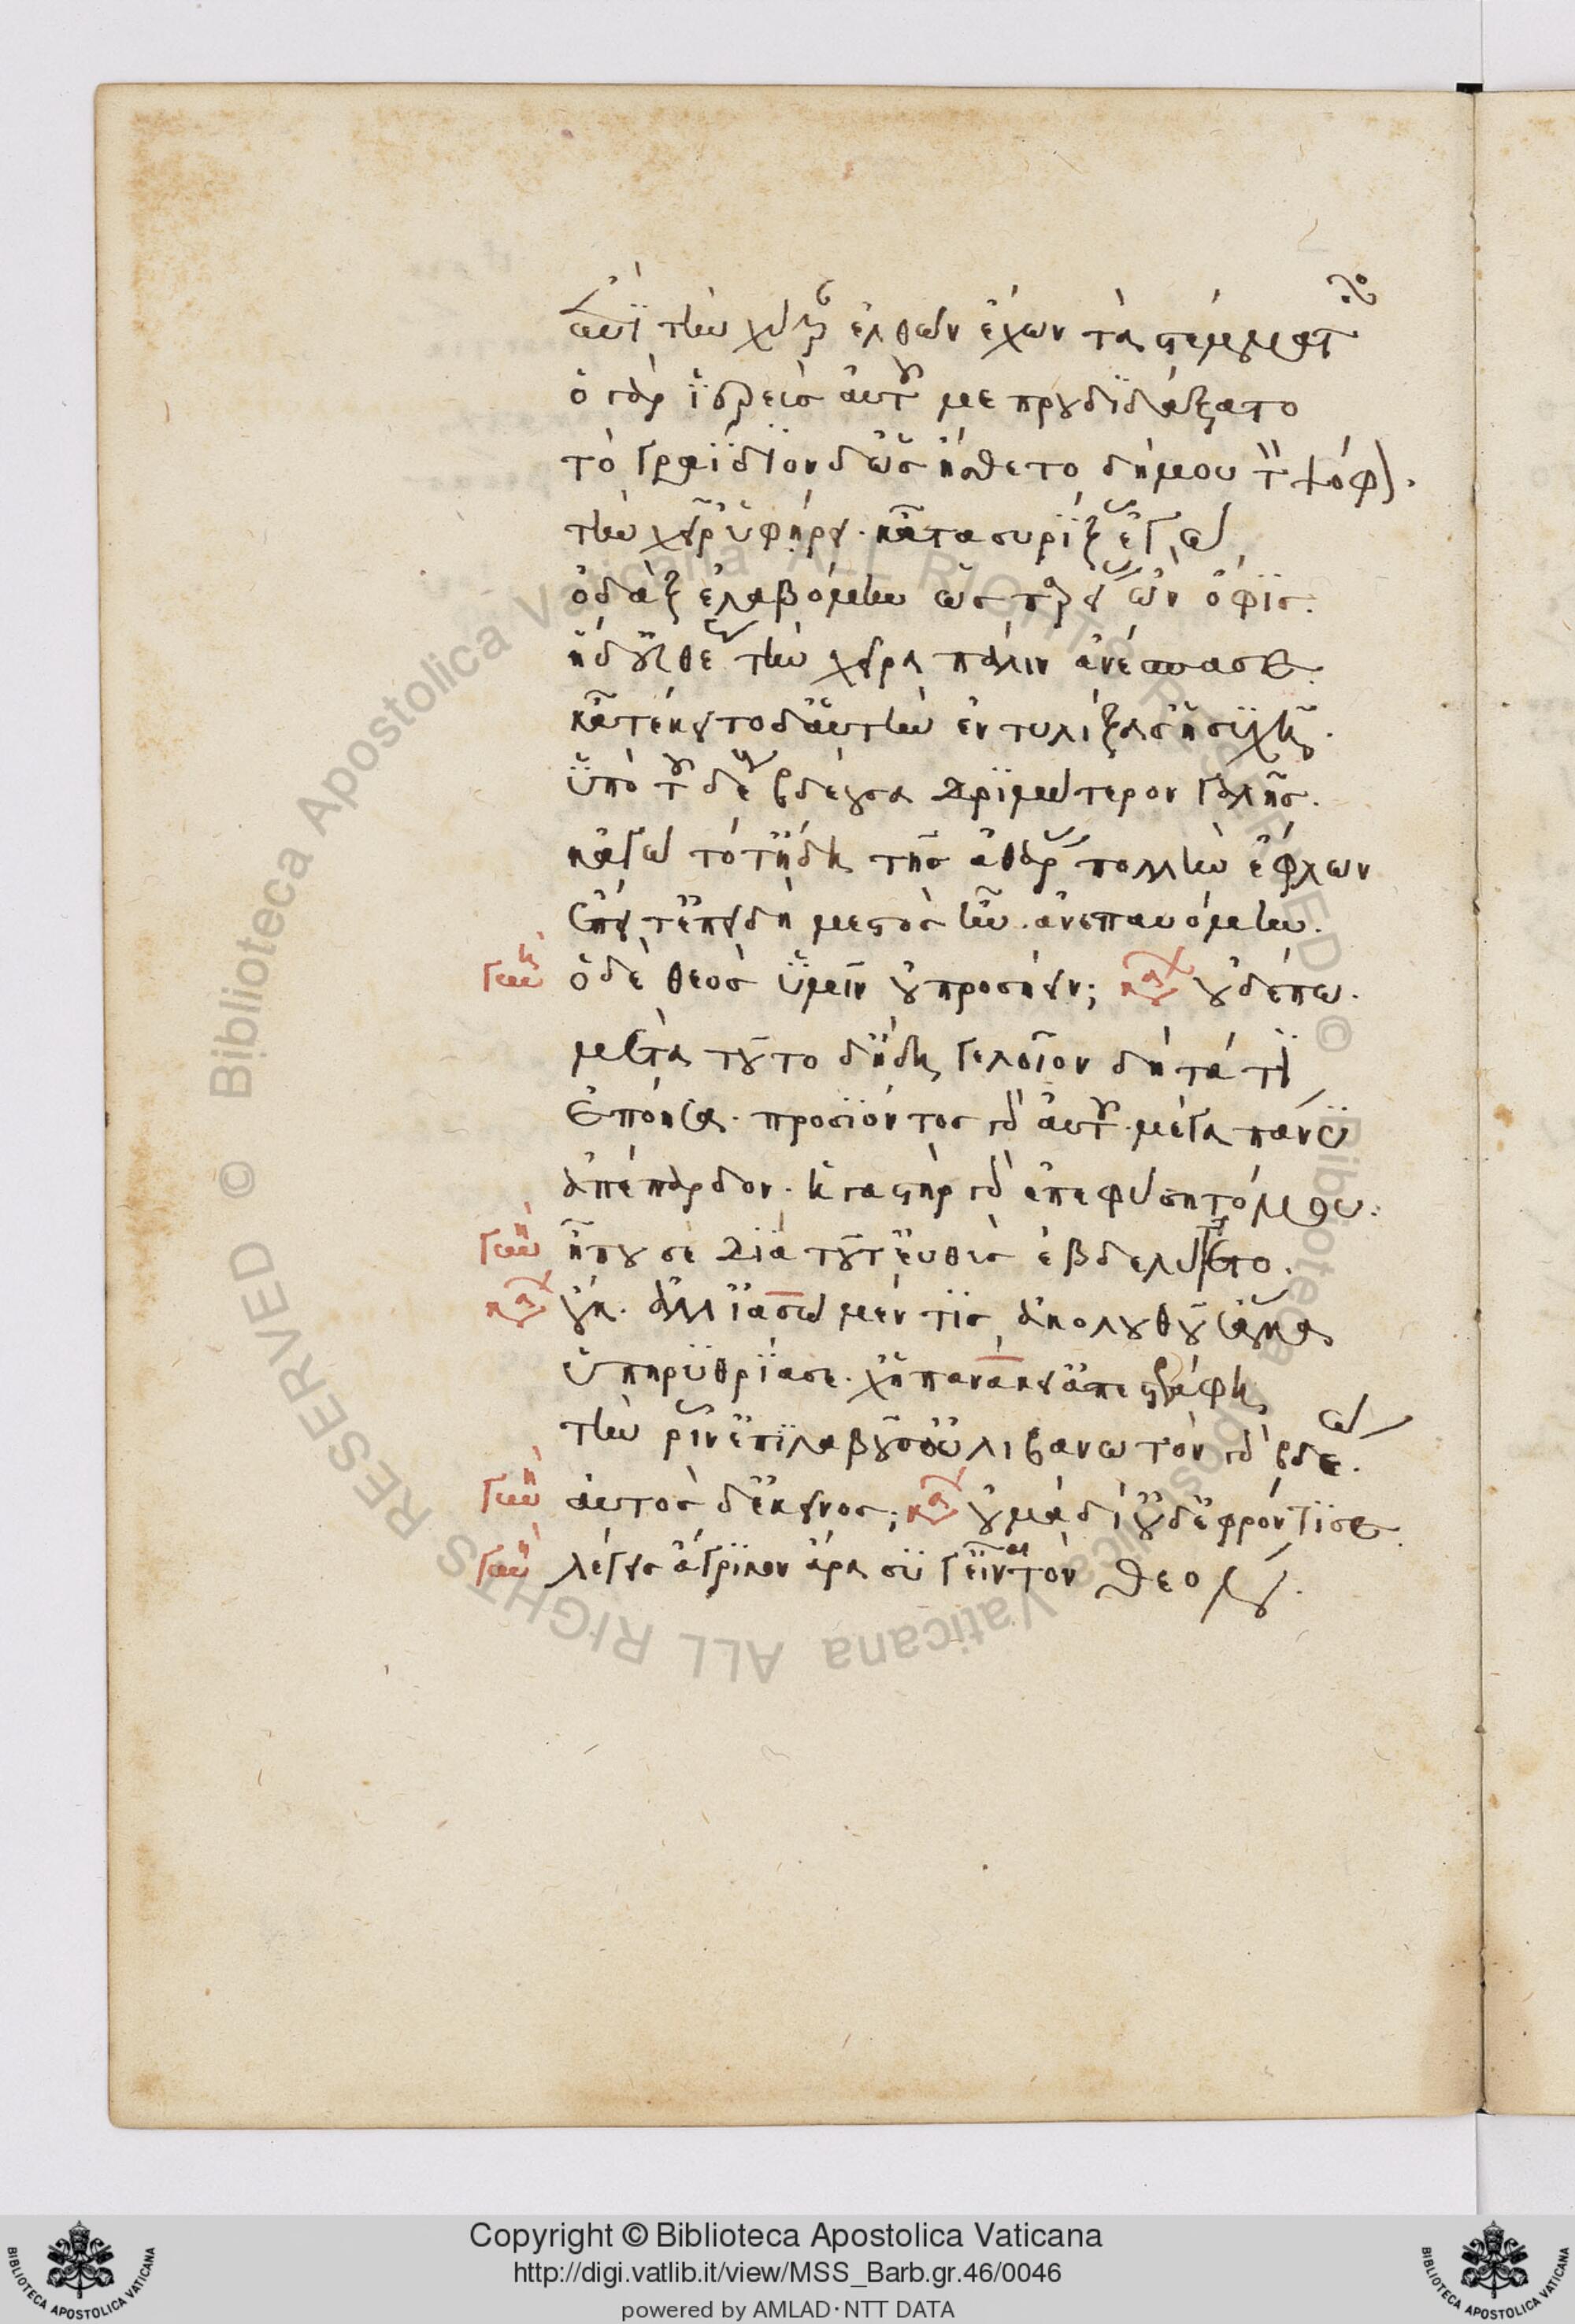 ἐπὶ τὴν χύτραν ἐλθὼν ἔχων τὰ στέμματα
ὁ γὰρ ἱερεὺς αὐτοῦ με προὐδιδάξατο
τὸ γραΐδιον δ' ὡς ᾔσθετο δή μου τὸν ψόφον.
τὴν χεῖρ' ὑφῄρει. κᾆτα συρίξας ἐγὼ
ὀδὰξ ἐλαβόμην ὡς παρείας ὢν ὄφις.
ἡ δ' εὐθέως τὴν χεῖρα πάλιν ἀνέσπασε.
κατέκειτο δ' αὑτὴν ἐντυλίξασ' ἡσυχῆ.
ὑπὸ τοῦ δέους βδέουσα δριμύτερον γαλῆς.
κἀγὼ τότ' ἤδη τῆς ἀθάρας πολλὴν ἔφλων
ἔπειτ' ἐπειδὴ μεστὸς ἦν. ἀνεπαυόμην.
γυνὴ ὁ δὲ θεὸς ὑμῖν οὐ προσῄειν; καρ οὐδέπω.
μετὰ τοῦτο δ' ἤδη γελοῖον δῆτά τι
ἐποίησα. προσιόντος γὰρ αὐτοῦ. μέγα πάνυ
ἀπέπαρδον. ἡ γαστὴρ γὰρ ἐπεφύσητό μου.
γυνὴ ἦπού σε διὰ τοῦτ' εὐθὺς ἐβδελύττετο.
καρ οὔκ. ἀλλ' ἰασὼ μέν τις ἀκολουθοῦσ' ἅμα
ὑπηρυθρίασε. χἠ πανάκει' ἀπεστράφη
τὴν ῥῖν' ἐπιλαβοῦσ' οὐ λιβανωτὸν γὰρ βδέω.
γυνὴ αὐτὸς δ' ἐκεῖνος; καρ οὐ μὰ δί' οὐδ' ἐφρόντισε.
γυνὴ λέγεις ἄγροικον ἄρα σύ γ' εἶναι τὸν θεόν.
Copyright © Biblioteca Apostolica Vaticana
http://digi.vatlib.it/view/MSS_Barb.gr.46/0046
powered by AMLAD·NTT DATA